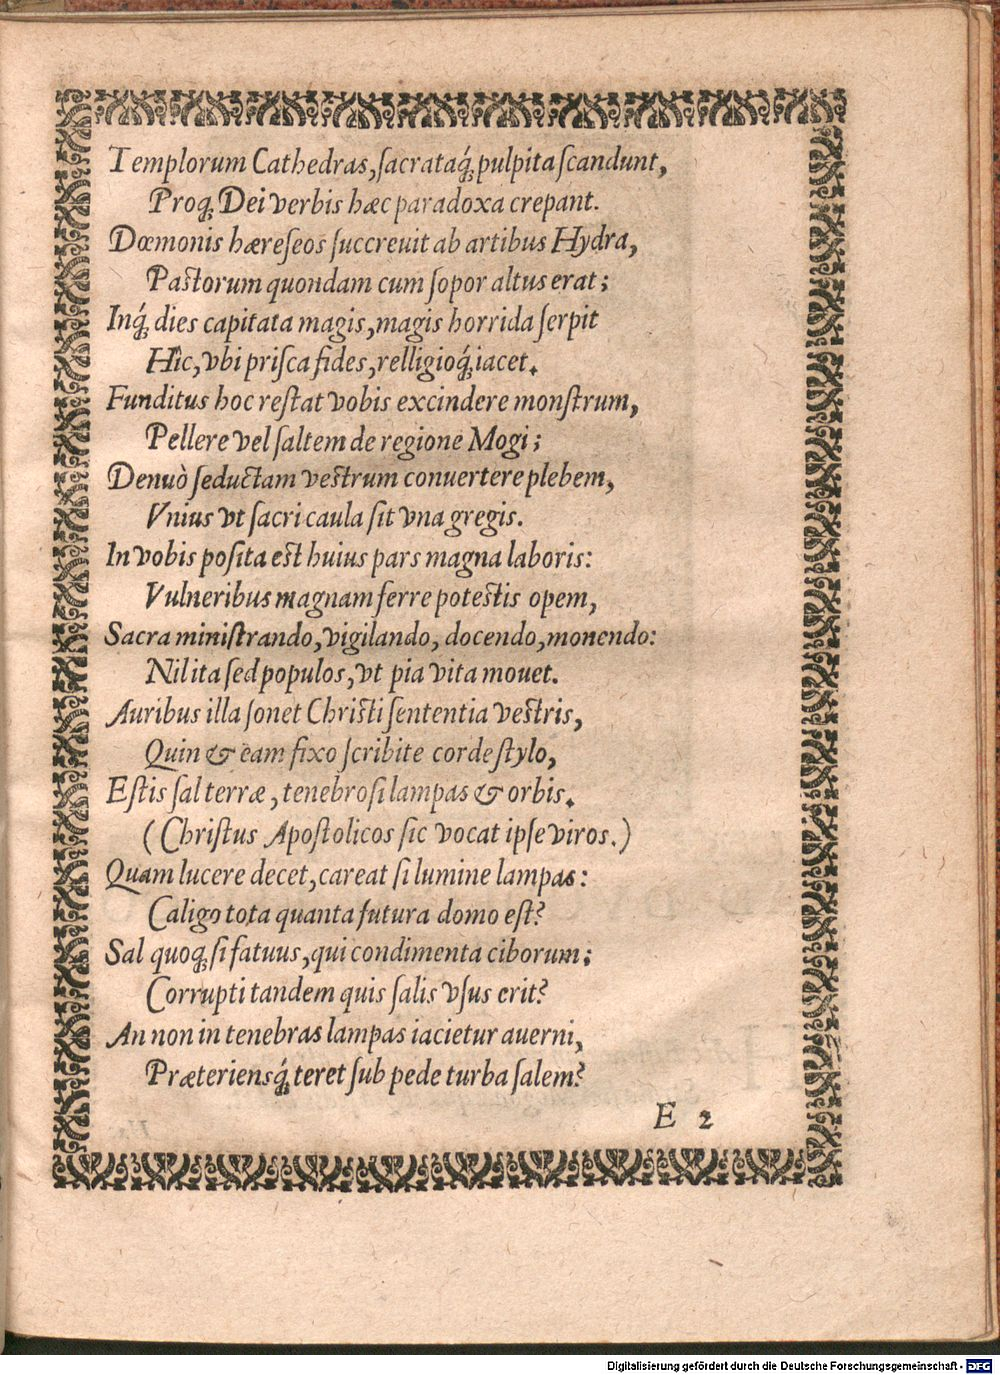 Templorum Cathedras, ſacrataq́; pulpita ſcandunt,
Proq; Dei verbis hæc paradoxa crepant.
Dœmonis hæreſeos ſuccreuit ab artibus Hydra,
Paſtorum quondam cum ſopor altus erat;
Inq́; dies capitata magis, magis horrida ſerpit
Hîc, vbi priſca fides, relligioq́; iacet.
Funditus hoc reſtat vobis excindere monſtrum,
Pellere vel ſaltem de regione Mogi;
Denuò ſeductam veſtrum conuertere plebem,
Vnius vt ſacri caula ſit vna gregis.
In vobis poſita eſt huius pars magna laboris:
Vulneribus magnam ferre poteſtis opem,
Sacra miniſtrando, vigilando, docendo, monendo:
Nil ita ſed populos, vt pia vita mouet.
Auribus illa ſonet Chriſti ſententia veſtris,
Quin & eam fixo ſcribite corde ſtylo,
Eſtis ſal terræ, tenebroſi lampas & orbis.
(Chriſtus Apoſtolicos ſic vocat ipſe viros.)
Quam lucere decet, careat ſi lumine lampas:
Caligo tota quanta futura domo eſt?
Sal quoq; ſi fatuus, qui condimenta ciborum;
Corrupti tandem quis ſalis vſus erit?
An non in tenebras lampas iacietur auerni,
Præteriensq́; teret ſub pede turba ſalem?
E 2
Digitalisierung gefördert durch die Deutsche Forschungsgemeinschaft - DFG